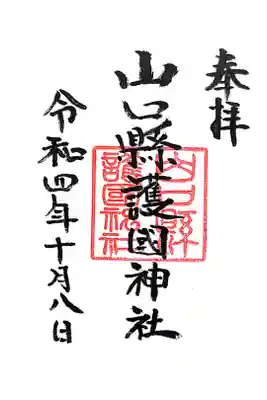 奉拝
山口縣護國神社
山口縣護國神社
令和四年十月八日